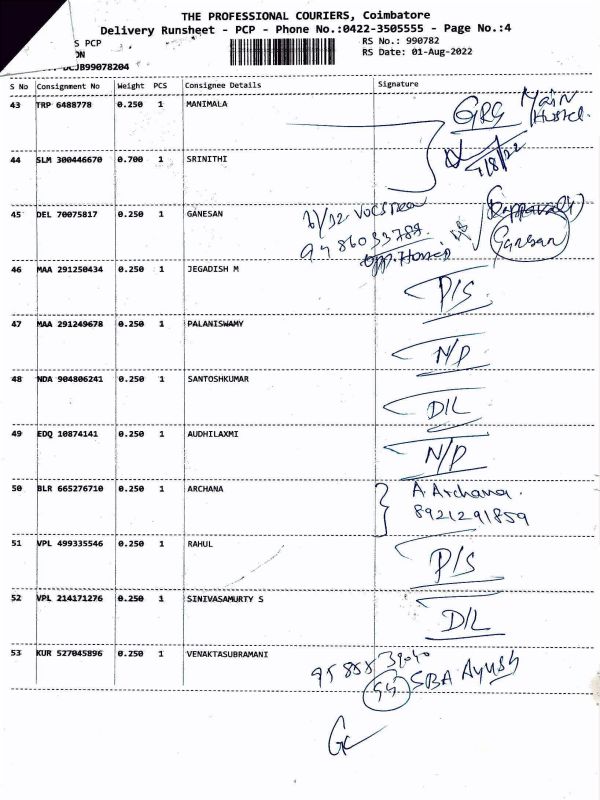 THE PROFESSIONAL COURIERS, Coimbatore
Delivery Runsheet - PCP - Phone No.:0422-3505555 - Page No.:4
S PCP
ON
RS No.: 990782
RS Date: 01-Aug-2022
JB99078204
S No Consignment No Weight PCS Consignee Details Signature
43 TRP 6488778 0.250 1 MANIMALA GRG Main Hostel.
44 SLM 300446670 0.700 1 SRINITHI 4/8/22
45 DEL 70075817 0.250 1 GANESAN
9486033788
46 MAA 291250434 0.250 1 JEGADISH M P/S
47 MAA 291249678 0.250 1 PALANISWAMY N/P
48 NDA 904806241 0.250 1 SANTOSHKUMAR D/L
49 EDQ 10874141 0.250 1 AUDHILAXMI N/P
50 BLR 665276710 0.250 1 ARCHANA A. Archana.
8921291859
51 VPL 499335546 0.250 1 RAHUL P/S
52 VPL 214171276 0.250 1 SINIVASAMURTY S D/L
53 KUR 527045896 0.250 1 VENAKTASUBRAMANI
SBA Ayush